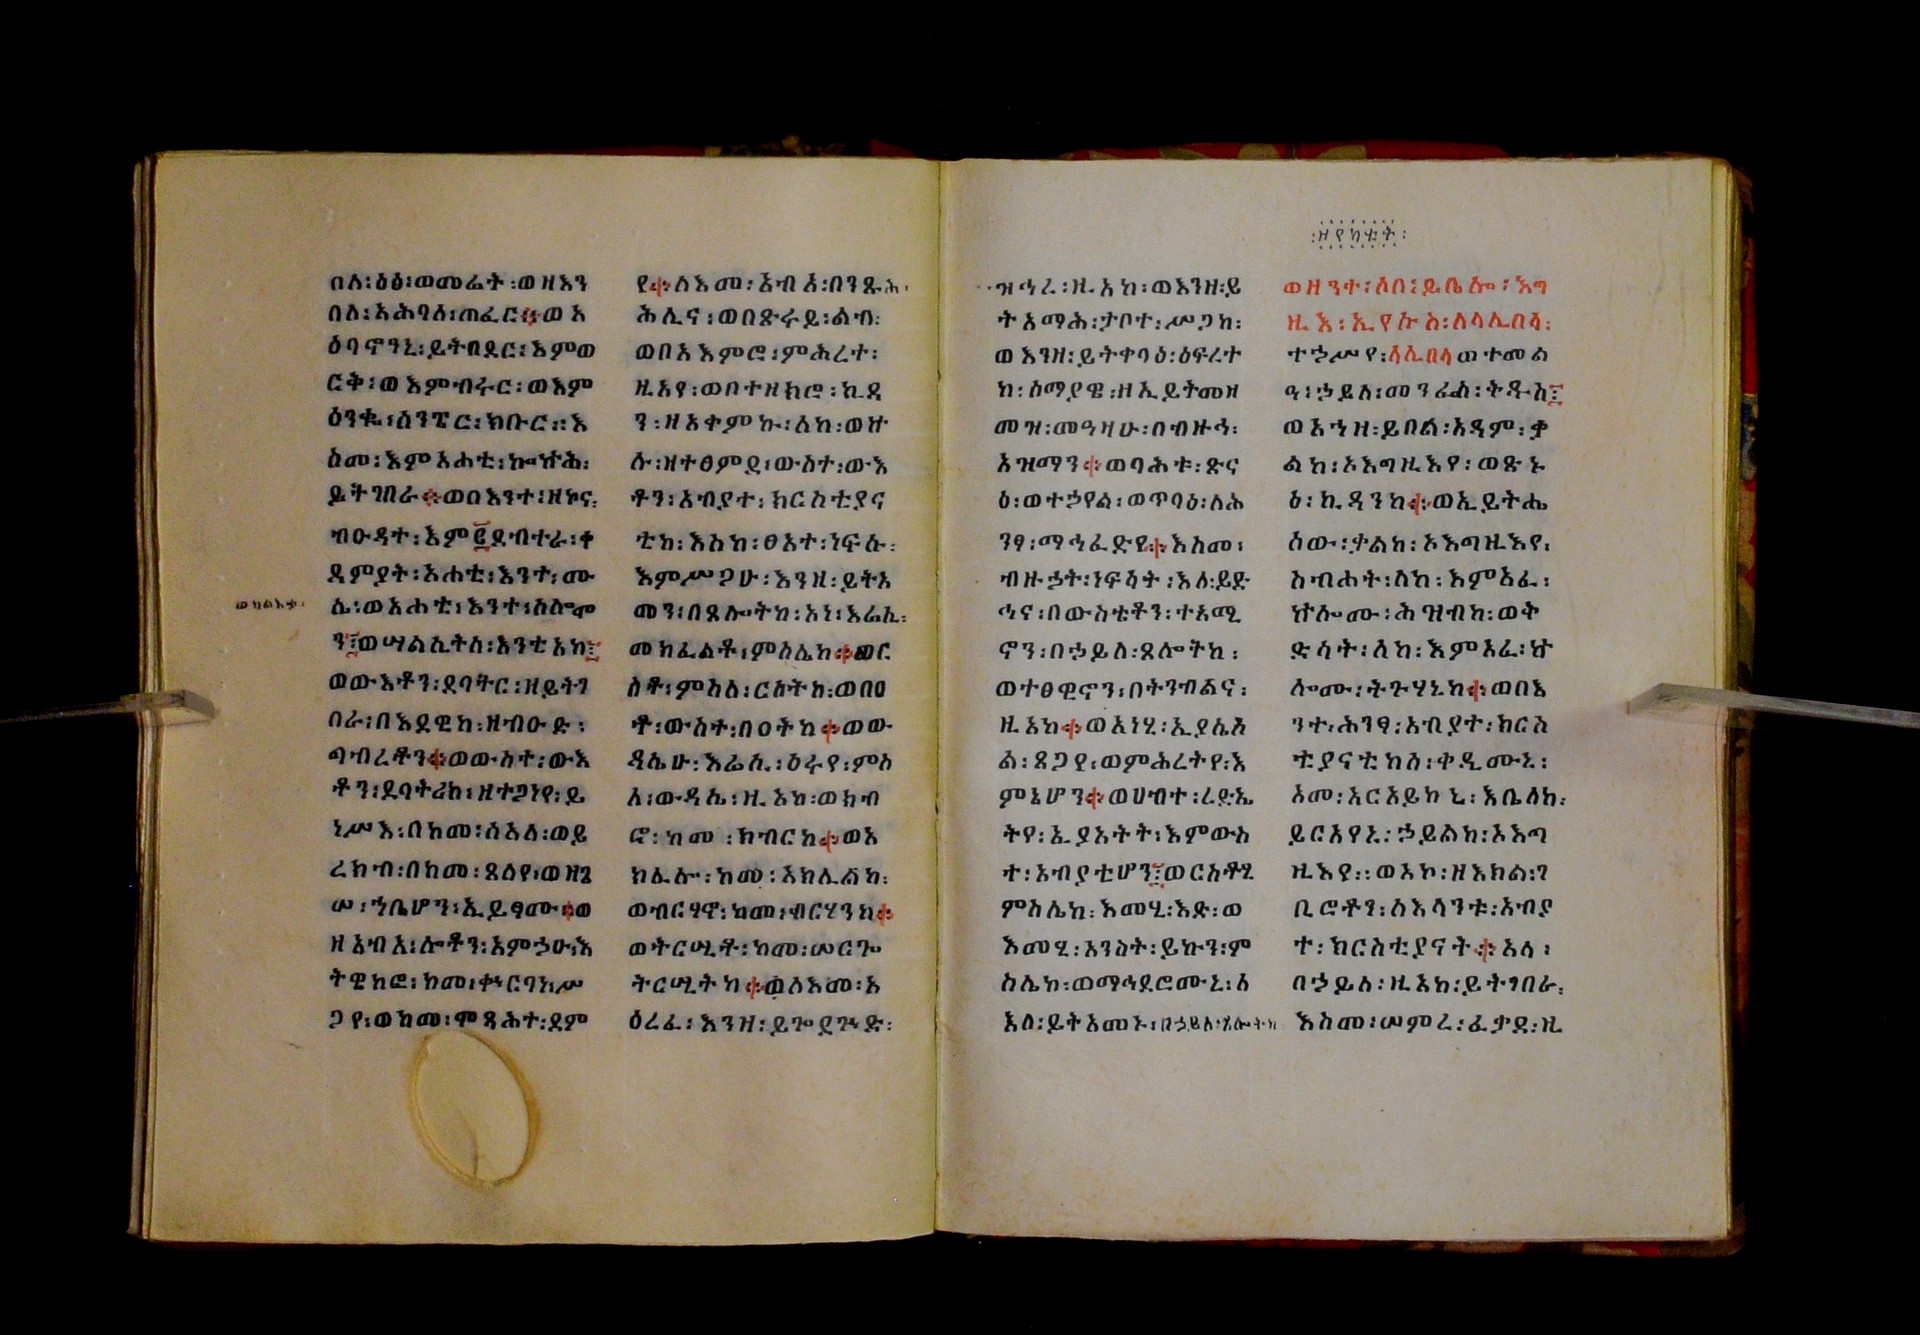 በለ፡ዕፅ፡ወመሬት፡ወዘእን
በለ፡አሕባለ፡ጠፈር፨ወአ
ዕባኖንኒ፡ይትበደር፡እምወ
ርቅ፡ወእምብሩር፡ወእም
ዕንቈ፡ሰንፔር፡ክቡር፡፡እ
ስመ፡እምአሐቲ፡ኰኵሕ፡
ይትገበራ፨ወበእንተ፡ዘኮና፡
ብዑዳተ፡እም፪ደብተራ፡ቀ
ዳምያት፡አሐቲ፡እንተ፡ሙ
ሴ፡ወአሐቲ፡እንተ፡ሰሎሞ
ን፤ወሣልሲትሰ፡አንቲ አከ፤
ወውእቶን፡ደባትር፡ዘይትገ
በራ፡በእደዊከ፡ዘብዑድ፡
ጣብረቶን፨ወውስተ፡ውእ
ቶን፡ደባትሪከ፡ዘተጋነየ፡ይ
ነሥእ፡በከመ፡ሰአለ፡ወይ
ረክብ፡በከመ፡ጸለየ፡ወዘገ
ሠ፡ኀቤሆን፡ኢይፃሙ፨ወ
ዘአብአ፡ሎቶን፡አምኃሁ፡እ
ትዌከፎ፡ከመ፡ቀኍርባነ፡ሥ
ጋየ፡ወከመ፡ሞጻሕተ፡ደም
የ፨ለእመ፡አብአ፡በንጹሕ፡
ሕሊና፡ወበጽሩይ፡ልብ፡
ወበአእምሮ፡ምሕረተ፡
ዚአየ፡ወበተዘክሮ፡ኪዳ
ን፡ዘአቀምኩ፡ለከ፡ወኵ
ሉ፡ዘተፀምደ፡ውስተ፡ውእ
ቶን፡አብያተ፡ክርስቲያና
ቲከ፡እስከ፡ፀአተ፡ነፍሱ፡
እምሥጋሁ፡እንዘ፡ይትአ
መን፡በጸሎትከ፡አነ፡እሬሲ፡
መክፈልቶ፡ምስሌከ፨ወር
ስቶ፡ምስለ፡ርስትከ፡ወበዐ
ቶ፡ውስተ፡በዐትከ፨ወው
ዳሴሁ፡እሬሲ፡ዕሩየ፡ምስ
ለ፡ውዳሴ፡ዚአከ፡ወክብ
ሮ፡ከመ፡ክብርከ፨ወአ
ክሊሎ፡ከመ፡አክሊልከ፡
ወብርሃኖ፡ከመ፡ብርሃንከ፨
ወትርሢት፡ከመ፡ሠርጐ
ትርሢትከ፨ወለእመ፡አ
ዕረፈ፡እንዘ፡ይጐደጕድ፡
ወክልኤቱ፡
ዝኅረ፡ዚአከ፡ወእንዘ፡ይ
ትአማሕ፡ታቦተ፡ሥጋከ፡
ወእንዘ፡ይትቀባዕ፡ዕፍረተ
ከ፡ሰማያዌ፡ዘኢይትመዘ
መዝ፡መዓዛሁ፡በብዙኅ፡
አዝማን፨ወባሕቱ፡ጽና
ዕ፡ወተኃየል፡ወጥባዕ፡ለሕ
ንፃ፡ማኅፈድየ፨እስመ፡
ብዙኃት፡ነፍሳት፡እለ፡ይድ
ኅና፡በውስቴቶን፡ተአሚ
ኖን፡በኃይለ፡ጸሎትከ፡
ወተፀዊኖን፡በትንብልና፡
ዚአከ፨ወአነሂ፡ኢያሴአ
ል፡ጸጋየ፡ወምሕረትየ፡እ
ምኔሆን፨ወሀብተ፡ረድኤ
ትየ፡ኢያአትት፡እምውስ
ተ፡አብያቲሆን፤ወርስቶሂ
ምስሌከ፡እመሂ፡እድ፡ወ
እመሂ፡አንስት፡ይኩን፡ም
ስሌከ፡ወማኅደሮሙኒ፡ለ
እለ፡ይትአመኑ፡በኃይለ፡ጸሎትከ
፡ዘየካቲት፡
ወዘንተ፡ሰበ፡ይቤሎ፡እግ
ዚእ፡ኢየሱስ፡ለላሊበላ፡
ተኃሥየ፡ላሊበላ ወተመል
ዓ፡ኃይለ፡መንፈስ፡ቅዱስ፤
ወአኀዘ፡ይበል፡አዳም፡ቃ
ልከ፡ኦእግዚእየ፡ወጽኑ
ዕ፡ኪዳንከ፨ወኢይትሔ
ሰው፡ቃልከ፡ኦእግዚእየ፡
ስብሐት፡ለከ፡እምአፈ፡
ኵሎሙ፡ሕዝብከ፡ወቅ
ድሳት፡ለከ፡እምአፈ፡ኵ
ሎሙ፡ትጉሃኒከ፨ወበእ
ንተ፡ሕንፃ፡አብያተ፡ክርስ
ቲያናቲከሰ፡ቀዲሙኒ፡
አመ፡አርአይከኒ፡እቤለከ፡
ይርአየኒ፡ኃይልከ፡ኦእግ
ዚእየ፡፡ወአኮ፡ዘእክል፡ገ
ቢሮቶን፡ለእላንቱ፡አብያ
ተ፡ክርስቲያናት፨አላ፡
በኃይለ፡ዚአከ፡ይትገበራ፡
እስመ፡ሠምረ፡ፈቃደ፡ዚ